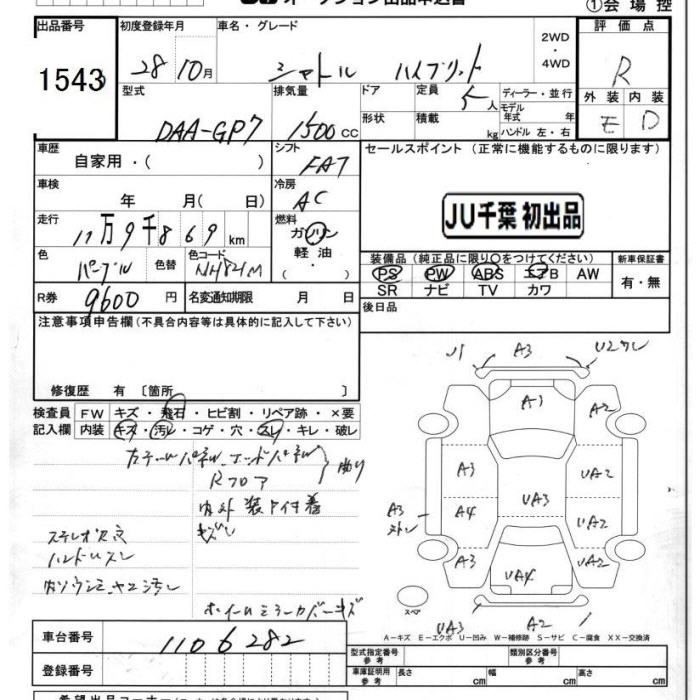 ①会場控
出品番号
1543
初度登録年月
28 10月
車名・グレード
シャトル ハイブリッド
2WD
・
4WD
評価点
R
外装 内装
E D
型式
DAA-GP7
排気量
1500 CC
ドア
形状
定員
5人
積載
kg
ディーラー・並行
モデル年式 年
ハンドル 左・右
車歴
自家用・( )
シフト
FAT
車検
年 月( 日)
冷房
AC
走行
11万9千869km
燃料
ガソリン
軽油・
( ・ )
色
パープル
色替
色コード
NH821M
R券
9600円
名変通知期限 月 日
セールスポイント (正常に機能するものに限ります)
JU千葉 初出品
装備品 (純正品に限り○をつけてください)
PS PW ABS エアB AW
SR ナビ TV カワ
新車保証書
有・無
後日品
注意事項申告欄(不具合内容等は具体的に記入して下さい)
修復歴 有 〔箇所 〕
検査員
記入欄
FW キズ・飛石・ヒビ割・リペア跡・×要
内装 キズ・汚レ・コゲ・穴・スレ・キレ・破レ
Rフロア
内外装
キズ
ステレオ欠品
ハンドルスレ
ホイールミラーカバーキズ
A3
A1
A2
A3
UA2
UA3
A4
UA2
A3
UA2
UA4
A3
UA3
A2
スペア
A-キズ E-エクボ U-凹み W-補修跡 S-サビ C-腐食 XX-交換済
車台番号
1106282
登録番号
型式指定番号
参考
類別区分番号
参考
車庫証明用
参考
長さ cm
幅 cm
高さ cm